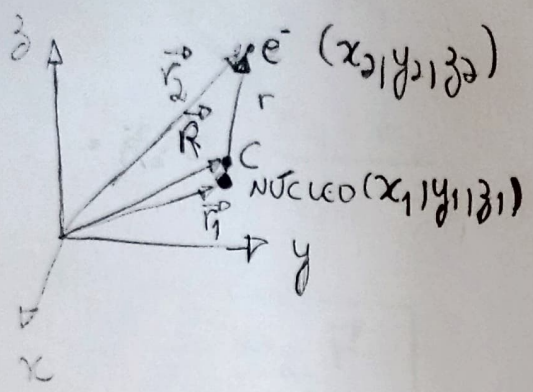 z
e⁻ (x₂, y₂, z₂)
r⃗₂
r
R⃗
C
NÚCLEO (x₁, y₁, z₁)
r⃗₁
y
x